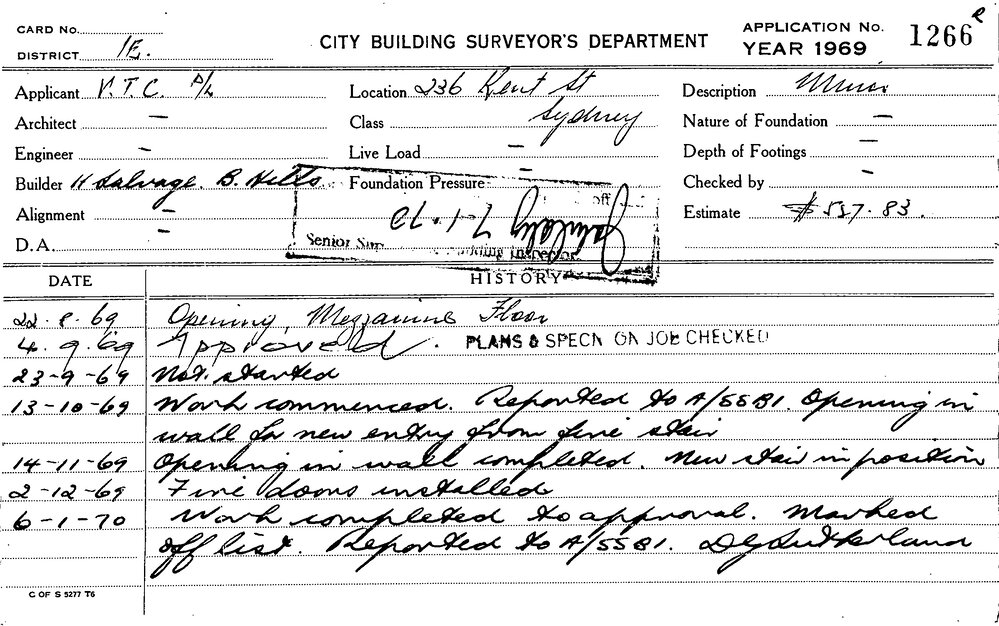 CARD No.
DISTRICT 1E.
CITY BUILDING SURVEYOR'S DEPARTMENT
APPLICATION No. 1266 R
YEAR 1969
Applicant V.T.C. P/L
Location 236 Kent St Sydney
Description Minor
Architect —
Class
Nature of Foundation —
Engineer -
Live Load —
Depth of Footings —
Builder H Salvage. B. Hills
Foundation Pressure -
Checked by -
Alignment —
Estimate $557.83.
D.A. —
off
7-1-70
Senior Building Inspector
HISTORY
DATE
22.8.69 Opening, Mezzanine Floor
4.9.69 Approved. PLANS & SPECN ON JOB CHECKED
23-9-69 Not started
13-10-69 Work commenced. Reported to A/SSBI. Opening in
wall for new entry from fire stair
14-11-69 Opening in wall completed. New stair in position
2-12-69 Fire doors installed
6-1-70 Work completed to approval. Marked
off list. Reported to A/SSBI. DG Sutherland
C OF S 5277 T6